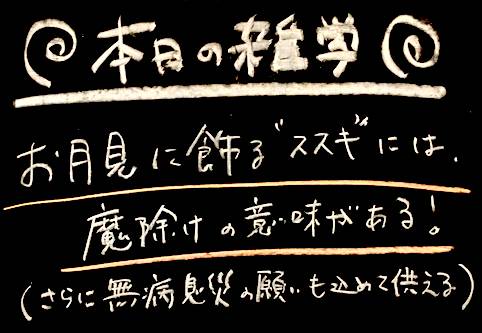 本日の雑学
お月見に飾る"ススキ"には、
魔除けの意味がある!
(さらに無病息災の願いも込めて供える)